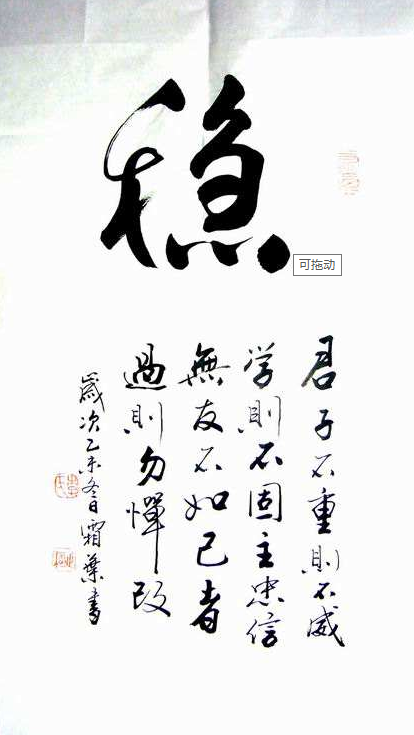 稳
可拖动
君子不重則不威
学則不固主忠信
無友不如己者
過則勿憚改
歲次乙未冬日霜葉書